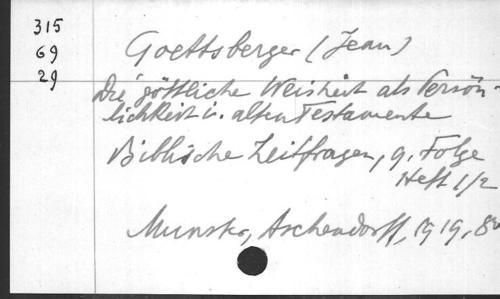 315
69
29
Goettsberger (Jean)
Die göttliche Weisheit als Persön-
lichkeit i. alten Testamente
Biblische Zeitfragen, 9. Folge
Heft 1/2
Munster, Aschendorff, 1919, 8º